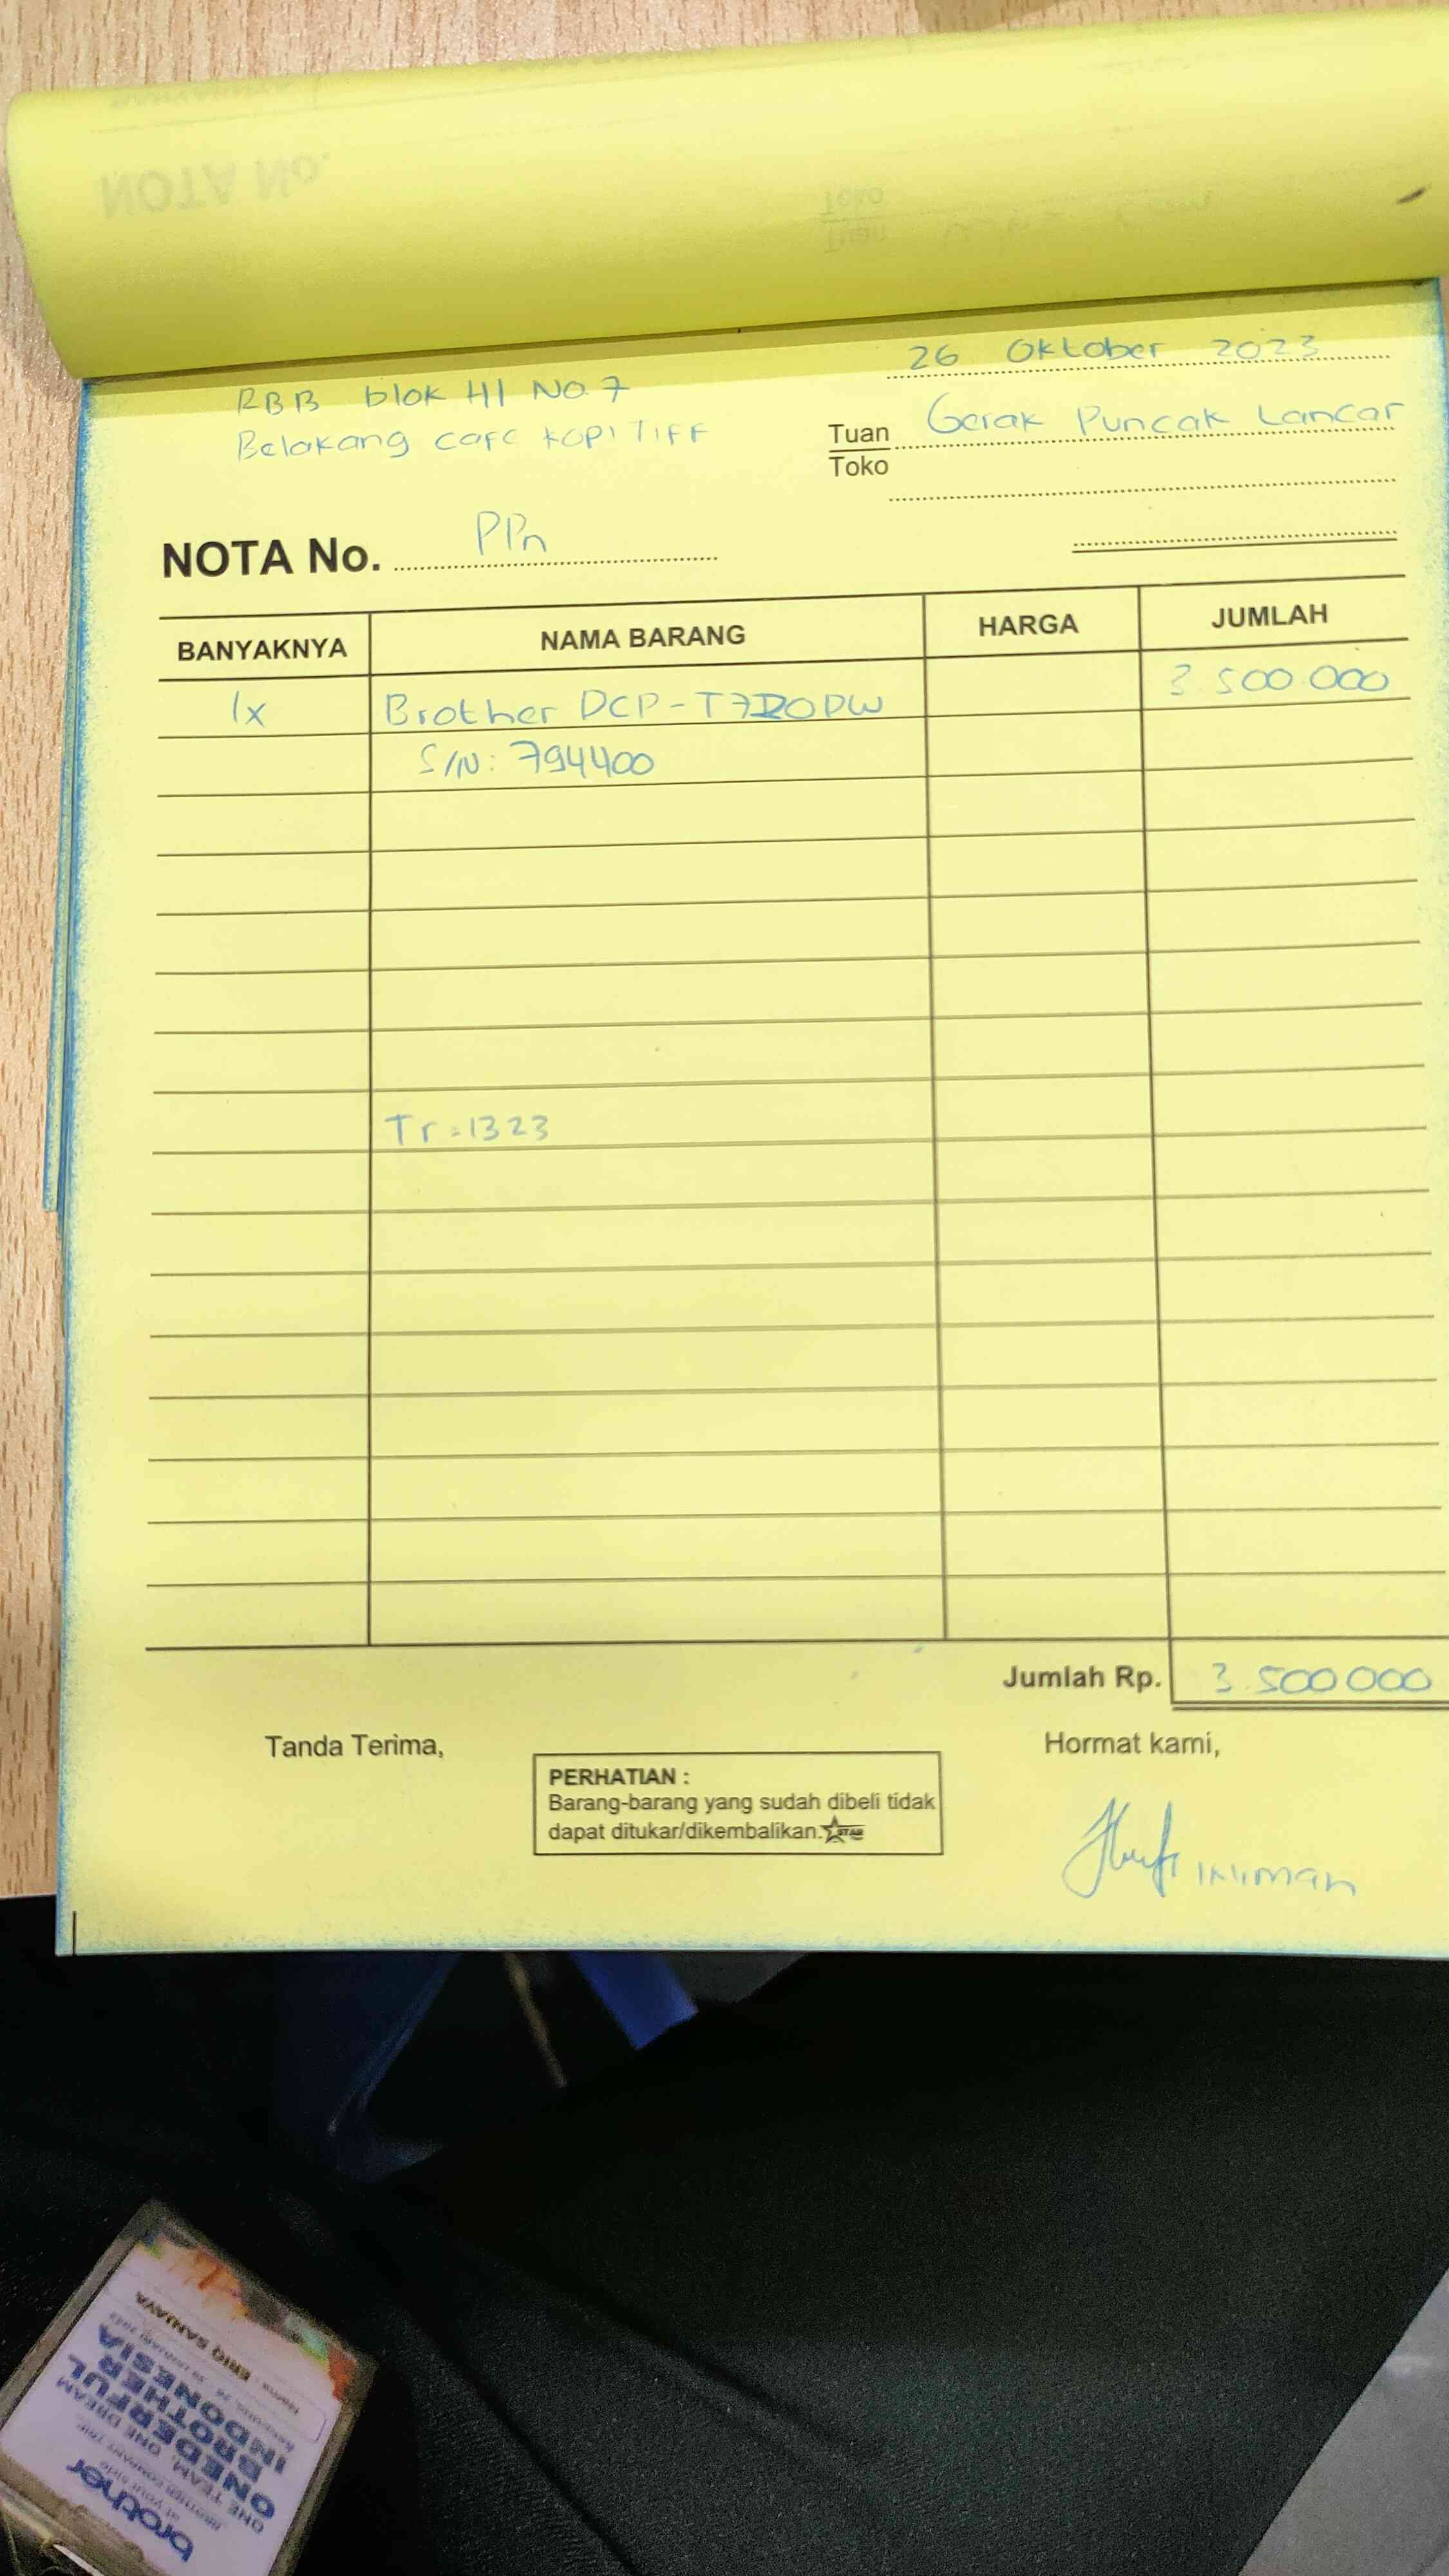 26 Oktober 2023
RBB blok H1 No 7
Belakang cafe KOPITIFF
Tuan
Toko
Gerak Puncak Lancar
NOTA No. PPn
BANYAKNYA NAMA BARANG HARGA JUMLAH
1x Brother DCP-T720DW 3.500.000
S/N: 794400
Tr=1323
Jumlah Rp. 3.500000
Tanda Terima,
Hormat kami,
PERHATIAN :
Barang-barang yang sudah dibeli tidak
dapat ditukar/dikembalikan.
STAR
brother
at your side
ONE TEAM, ONE DREAM
ONEDERFUL
BROTHER
INDONESIA
ERIQ SANJAYA
NOTA No.
Tuan
Toko